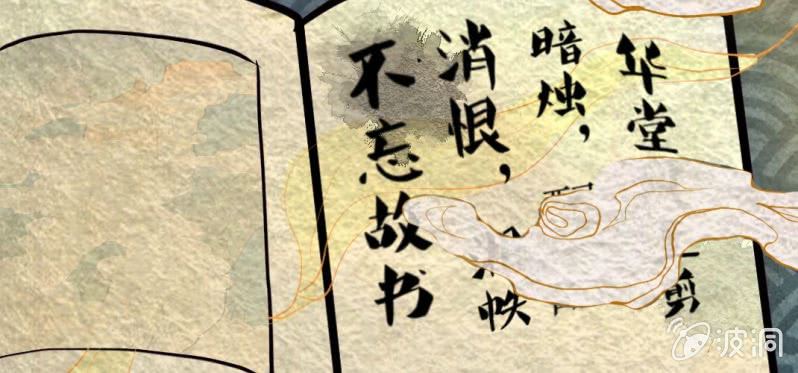 华堂 剪
暗烛，
消恨， 帙
不忘故书
波洞